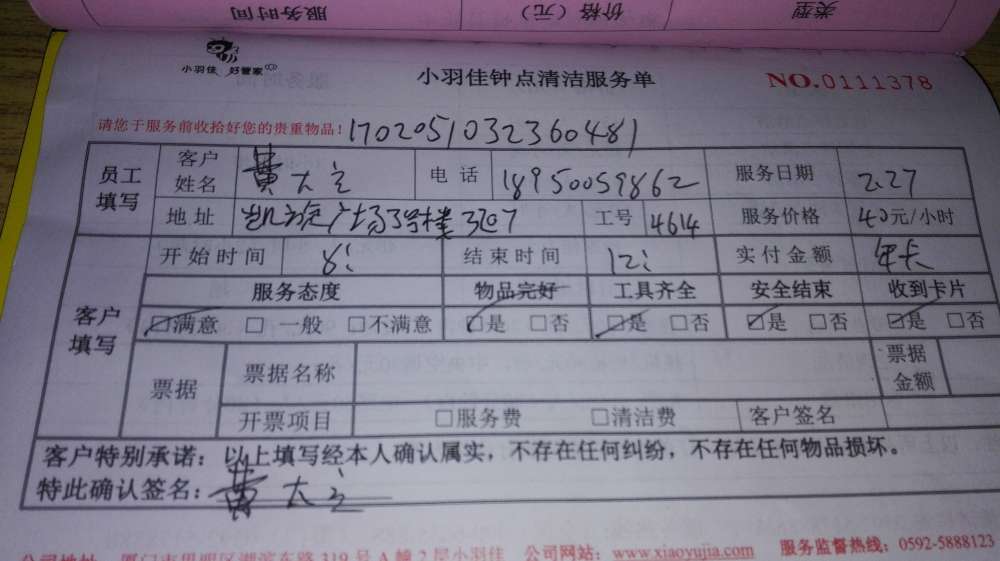 服务时间 价格（元） 类型
小羽佳 好管家
小羽佳钟点清洁服务单
NO.0111378
请您于服务前收拾好您的贵重物品！
1702051032360481
员工填写
客户姓名 黄大立 电话 18950059862 服务日期 2.27
地址 凯旋广场3号楼3207 工号 4614 服务价格 40元/小时
客户填写
开始时间 8: 结束时间 12: 实付金额 年卡
服务态度 物品完好 工具齐全 安全结束 收到卡片
☑满意 □一般 □不满意 ☑是 □否 ☑是 □否 ☑是 □否 ☑是 □否
票据 票据名称 票据金额
开票项目 □服务费 □清洁费 客户签名
客户特别承诺：以上填写经本人确认属实，不存在任何纠纷，不存在任何物品损坏。
特此确认签名：黄大立
公司地址 厦门市思明区湖滨东路319号A幢2层小羽佳 公司网站：www.xiaoyujia.com 服务监督热线：0592-5888123